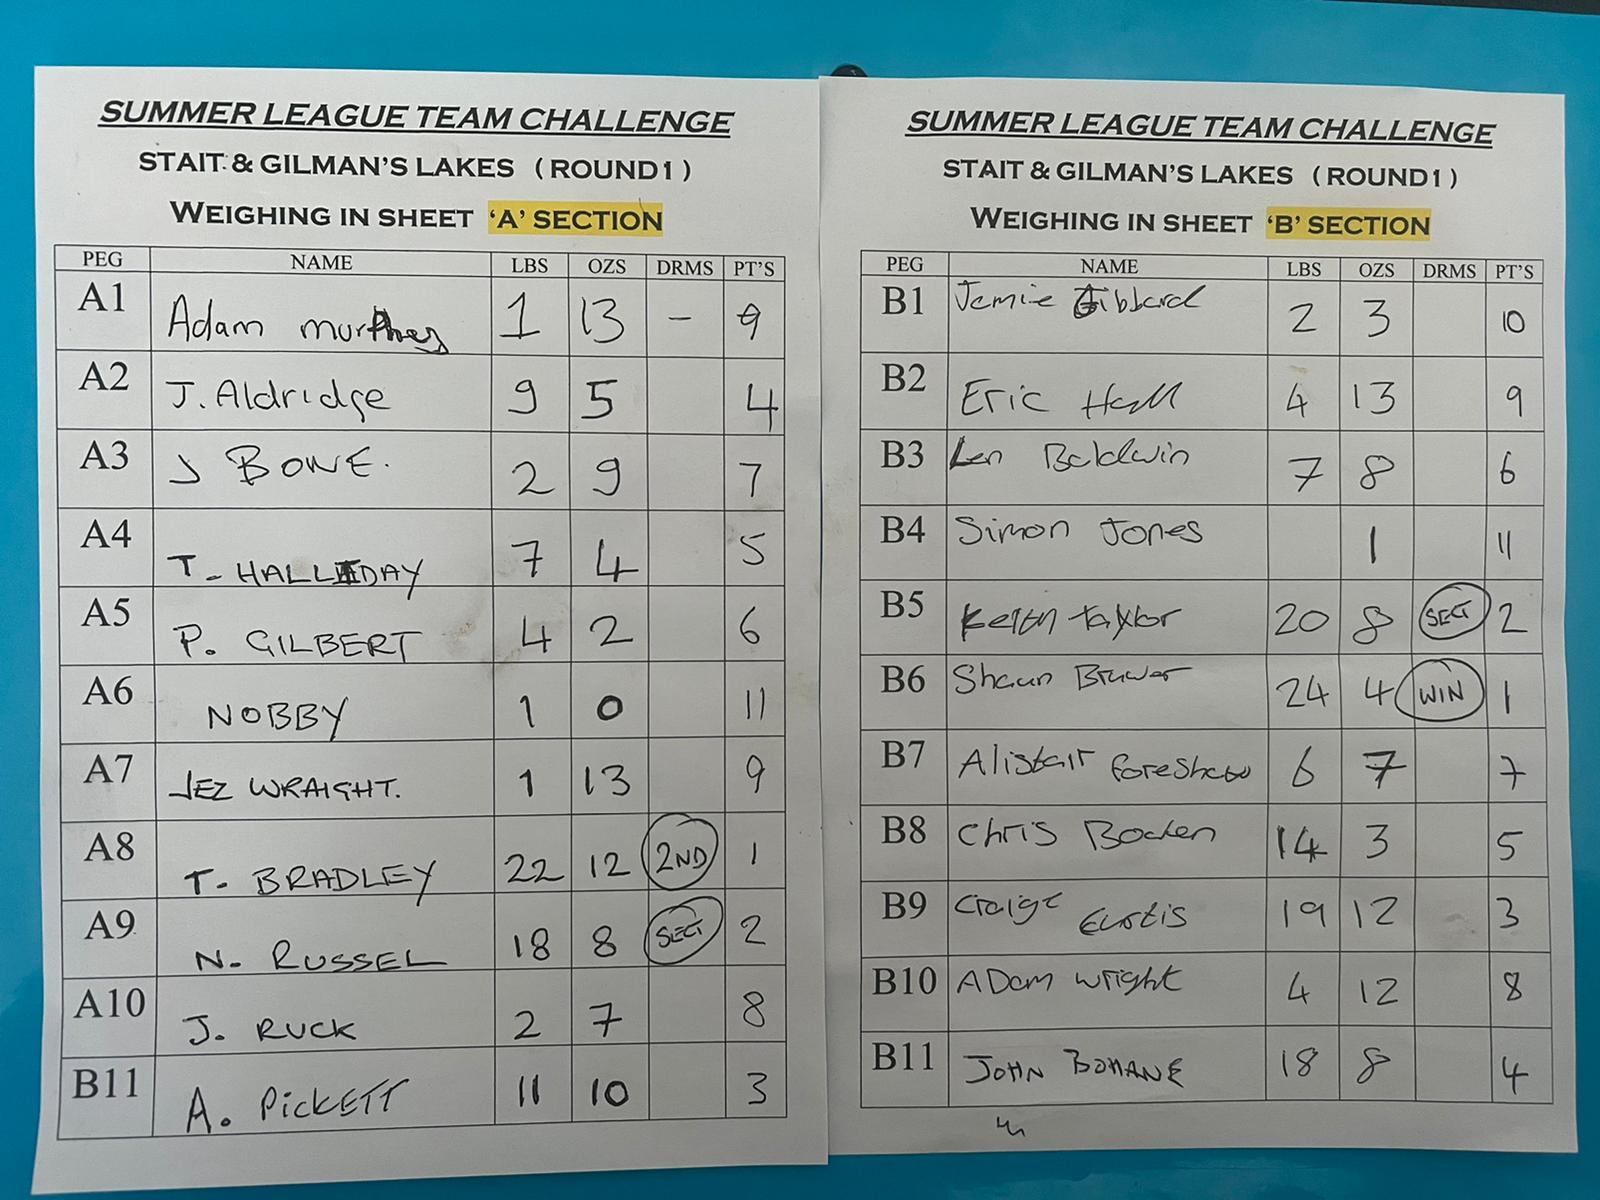 SUMMER LEAGUE TEAM CHALLENGE
STAIT & GILMAN'S LAKES (ROUND1)
WEIGHING IN SHEET 'A' SECTION
PEG NAME LBS OZS DRMS PT'S
A1 Adam murphey 1 13 - 9
A2 J. Aldridge 9 5 4
A3 J BONE. 2 9 7
A4 T- HALLIDAY 7 4 5
A5 P. GILBERT 4 2 6
A6 NOBBY 1 0 11
A7 JEZ WRAIGHT. 1 13 9
A8 T- BRADLEY 22 12 2ND 1
A9 N. RUSSEL 18 8 SECT 2
A10 J. RUCK 2 7 8
B11 A. PICKETT 11 10 3
SUMMER LEAGUE TEAM CHALLENGE
STAIT & GILMAN'S LAKES (ROUND1)
WEIGHING IN SHEET 'B' SECTION
PEG NAME LBS OZS DRMS PT'S
B1 Jamie Gibbard 2 3 10
B2 Eric Hall 4 13 9
B3 Len Baldwin 7 8 6
B4 Simon Jones 1 11
B5 Keith taylor 20 8 SECT 2
B6 Shaun 24 4 WIN 1
B7 Alistair foreshaw 6 7 7
B8 Chris 14 3 5
B9 Curtis 19 12 3
B10 ADam wright 4 12 8
B11 JOHN BOHANE 18 8 4